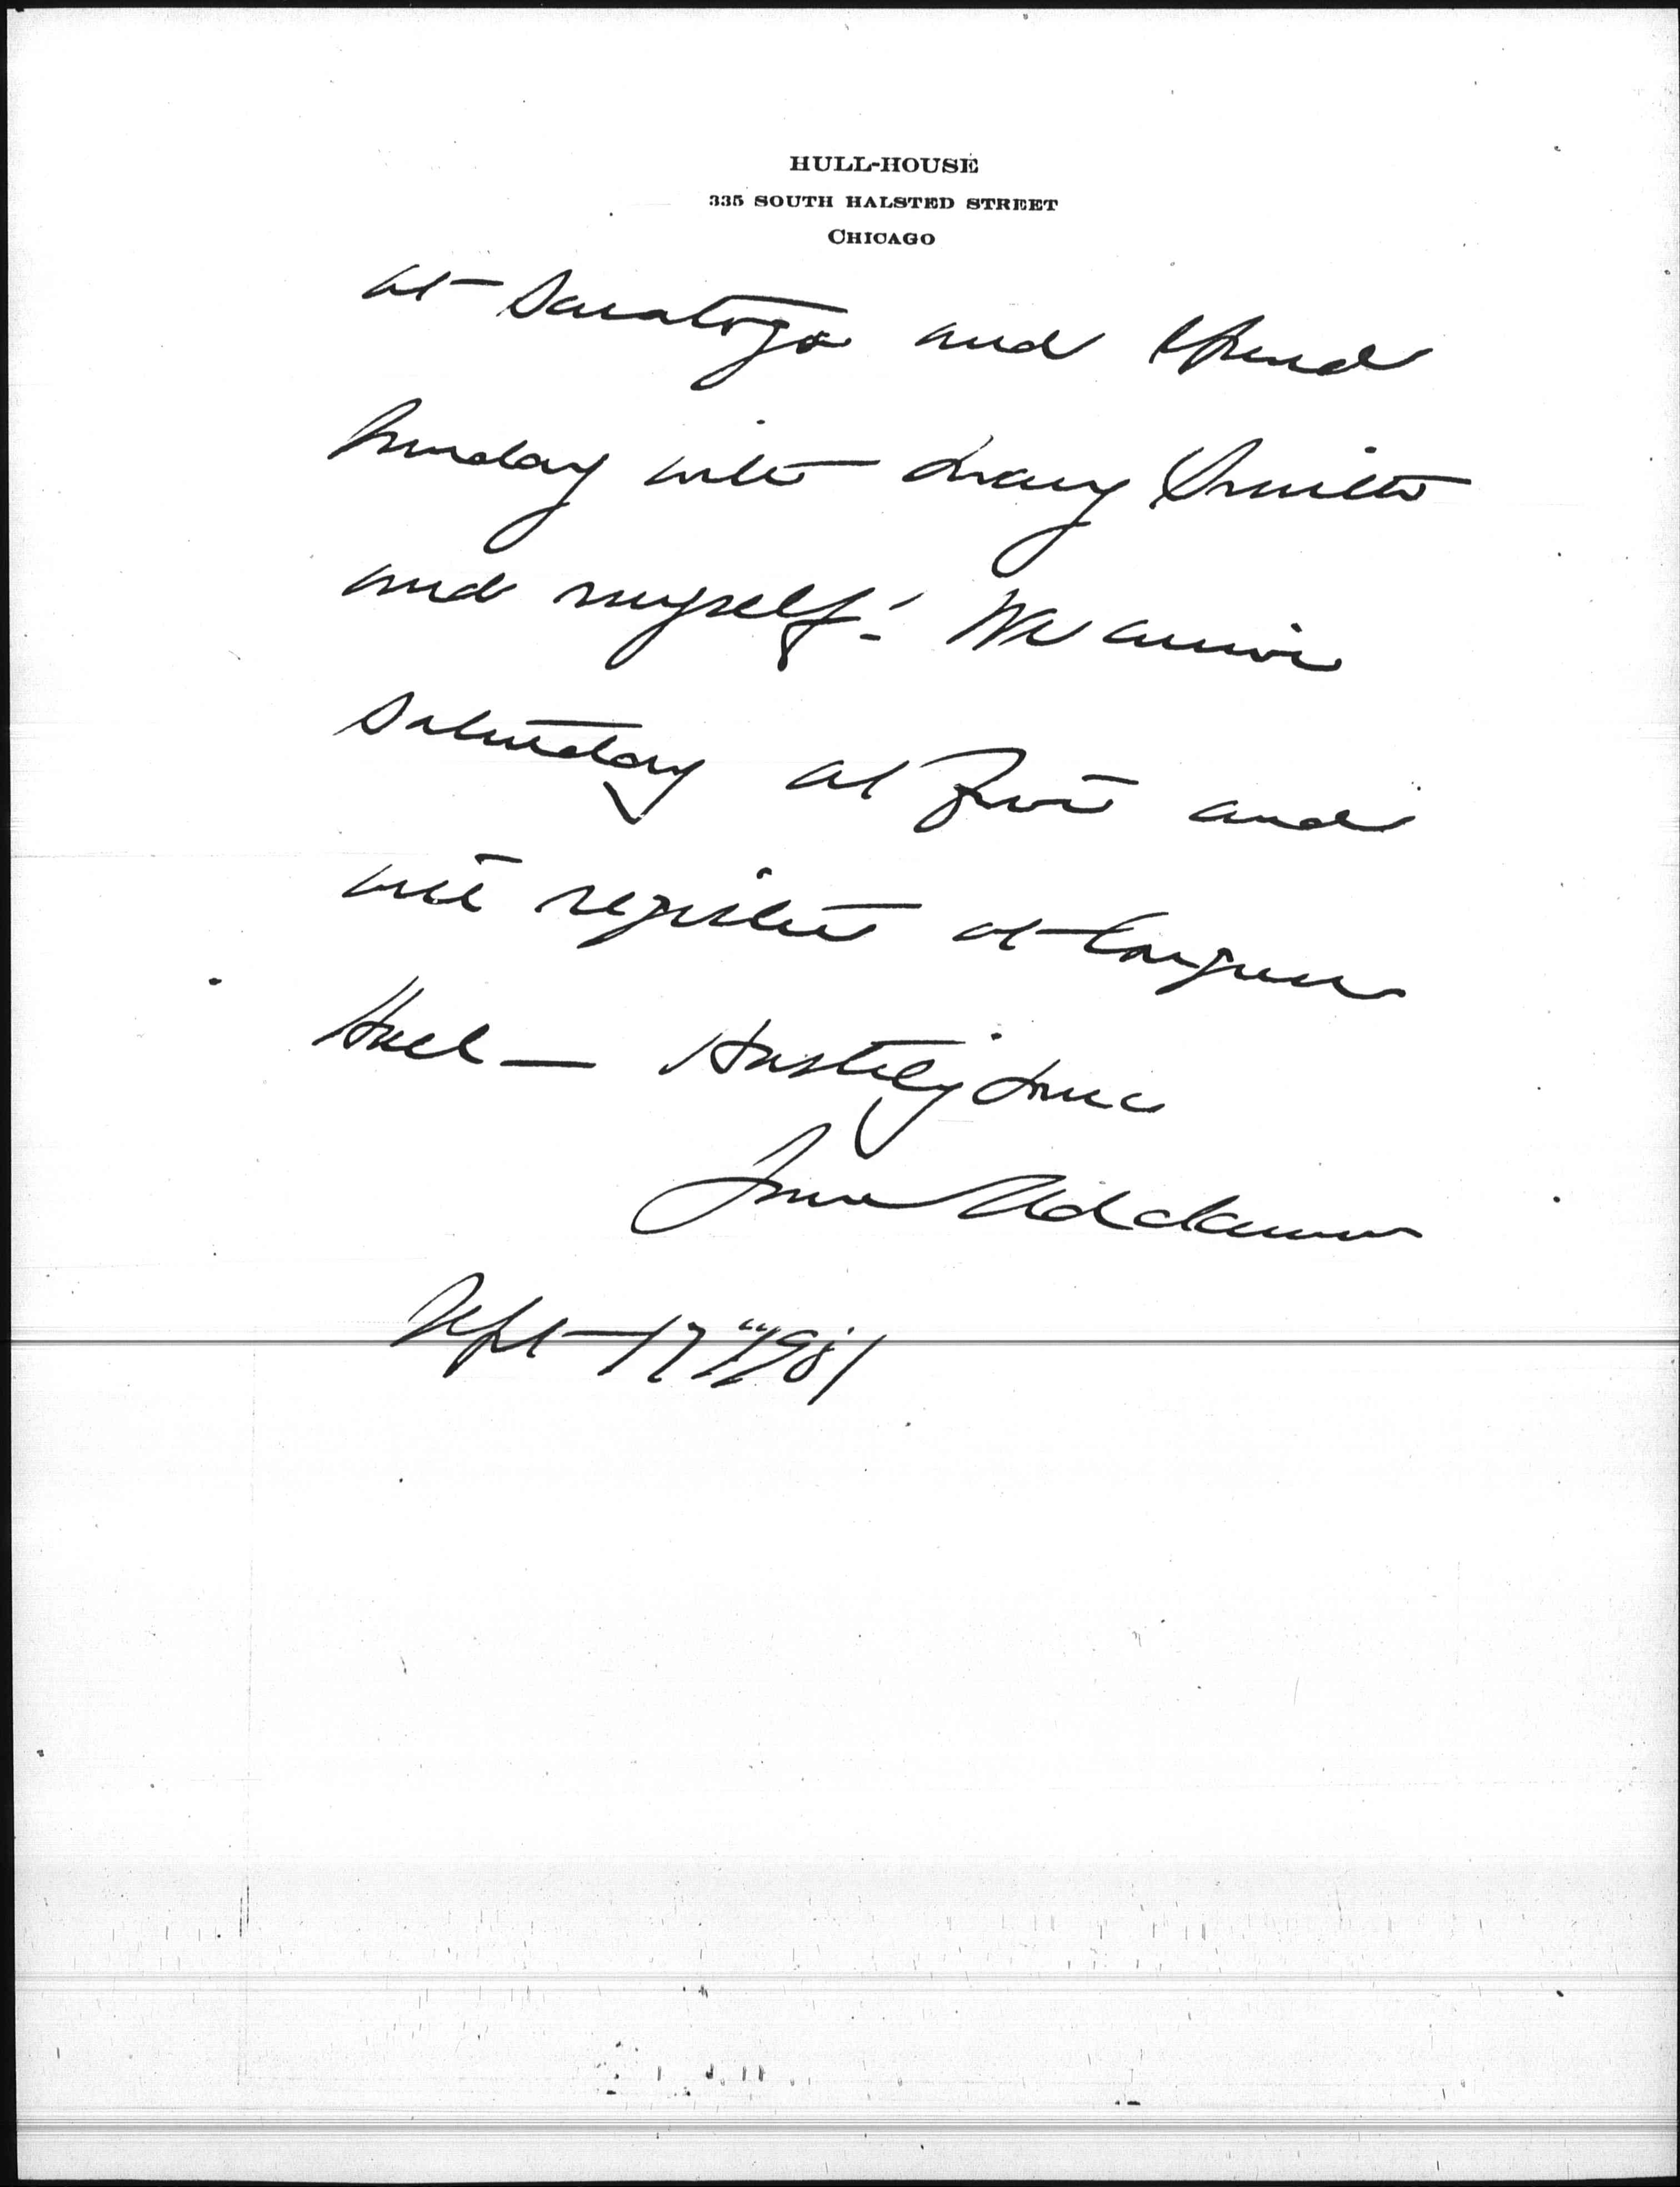 HULL-HOUSE
335 SOUTH HALSTED STREET
CHICAGO
at Saratoga and spend
Sunday with Mary Smith
and myself! We arrive
Saturday at five and
will register at Congress
Hall — Hastily yours
Jane Addams
Sept 17"